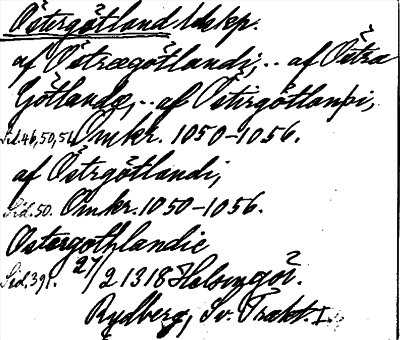 Östergötland ldskp.
af Östrægötlandi,.. af Östra
Götlandæ,.. af Östirgötlanþi,
Sid. 46, 50, 51. Omkr. 1050-1056.
af Östrgötlandi,
Sid. 50. Omkr. 1050-1056.
Ostergothlandie
Sid. 391. 27/2 1318 Helsingör.
Rydberg, Sv. Trakt. I.